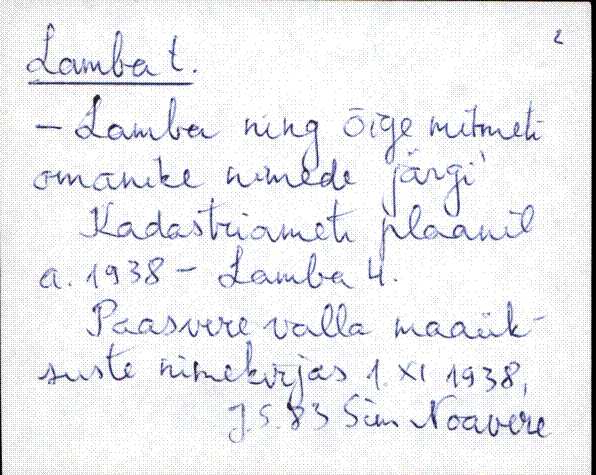 2
Lamba t.
- Lamba ning õige mitmeti
omanike nimede järgi
Kadastriameti plaanil
a. 1938 - Lamba 4.
Paasvere valla maaük-
suste nimekirjas 1. XI 1938,
J S. 83 Sim Noavere